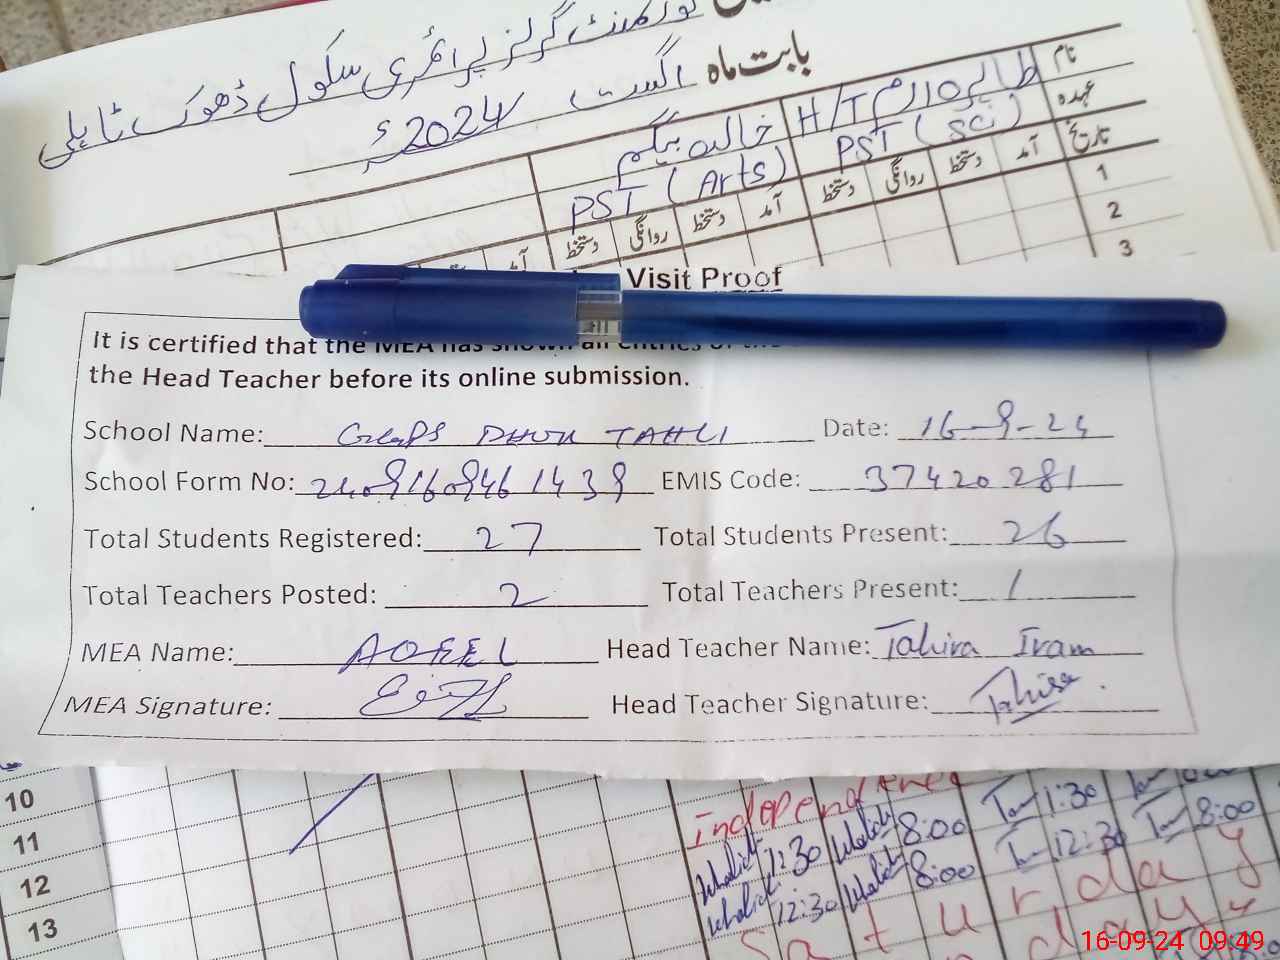 گورنمنٹ گرلز پرائمری سکول ڈھوک ٹاہلی
بابت ماہ اگست 2024ء
نام طاہرہ ارم H/T خالدہ بیگم
عہدہ PST (Sci) PST (Arts)
تاریخ آمد دستخط روانگی دستخط آمد دستخط روانگی دستخط آمد
1
2
3
Visit Proof
It is certified that the MEA has shown all entries of the
the Head Teacher before its online submission.
School Name: GGPS DHOK TAHLI Date: 16-9-24
School Form No: 240916094614 39 EMIS Code: 37420281
Total Students Registered: 27 Total Students Present: 26
Total Teachers Posted: 2 Total Teachers Present: 1
MEA Name: Head Teacher Name: Tahira Iram
MEA Signature: Head Teacher Signature: Tahira
10
11 1:30 8:00 1:30
12 12:30 8:00 12:30 8:00
13 Saturday
16-09-24 09:49